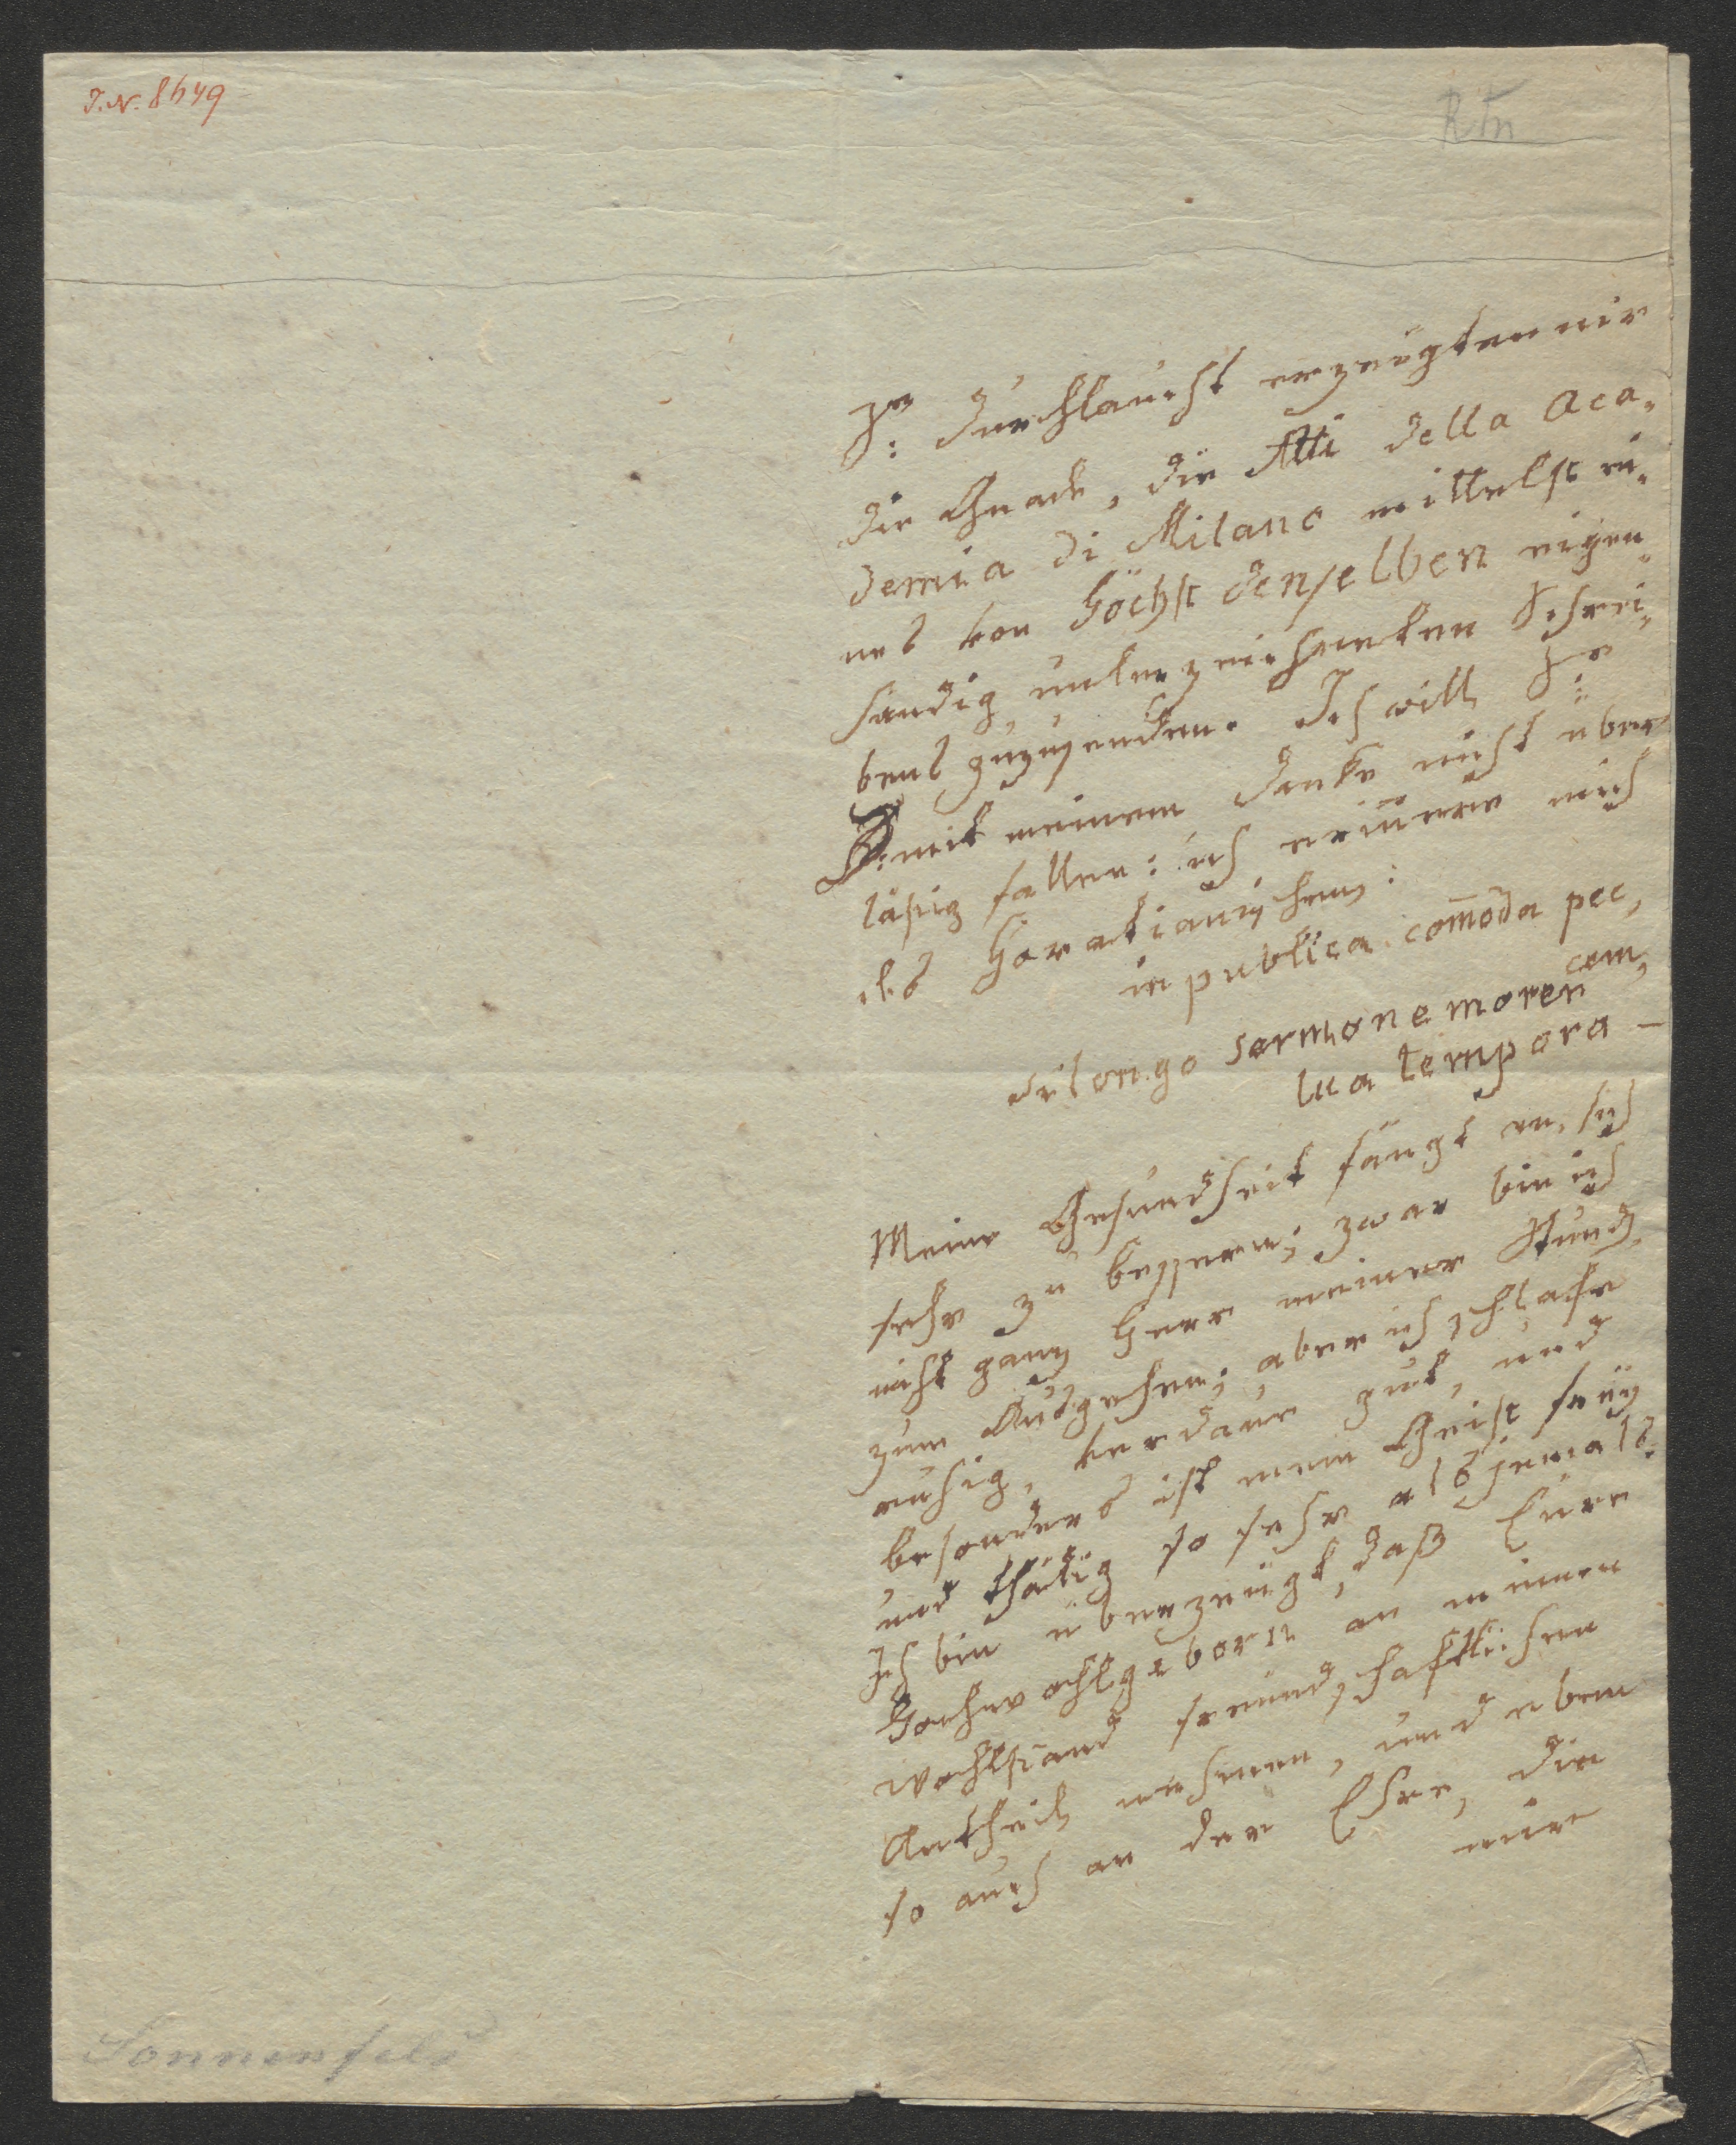 I.N. 8649
Sr: Durchlaucht erzeugten mir
die Gnade, die Atti della Aca-
demia di Milano mittelst ei-
nes von höchst denselben eigen-
händig unterzeichneten Schrei-
bens zuzusenden. Ich will Sr:
D: mit meinem Danke nicht über
läßig fallen: ich erinnere mich
des Horatianischen:
in publica comoda pec,
cem,
si longo sermone morer
tua tempora —
Meine Gesundheit fängt an, sich
sehr zu bessern; zwar bin ich
nicht ganz Herr meiner Stunde
zum Ausgehen; aber ich schlafe
ruhig, verdaue gut, und
besonders ist mein Geist frey
und thätig so sehr als jemals.
Ich bin überzeugt, daß Eure
Hochwohlgeborn an meinen
wohlstand freundschaftlichen
Antheil nehmen, und eben
so auch an der Ehre, die
mir
Sonnenfels